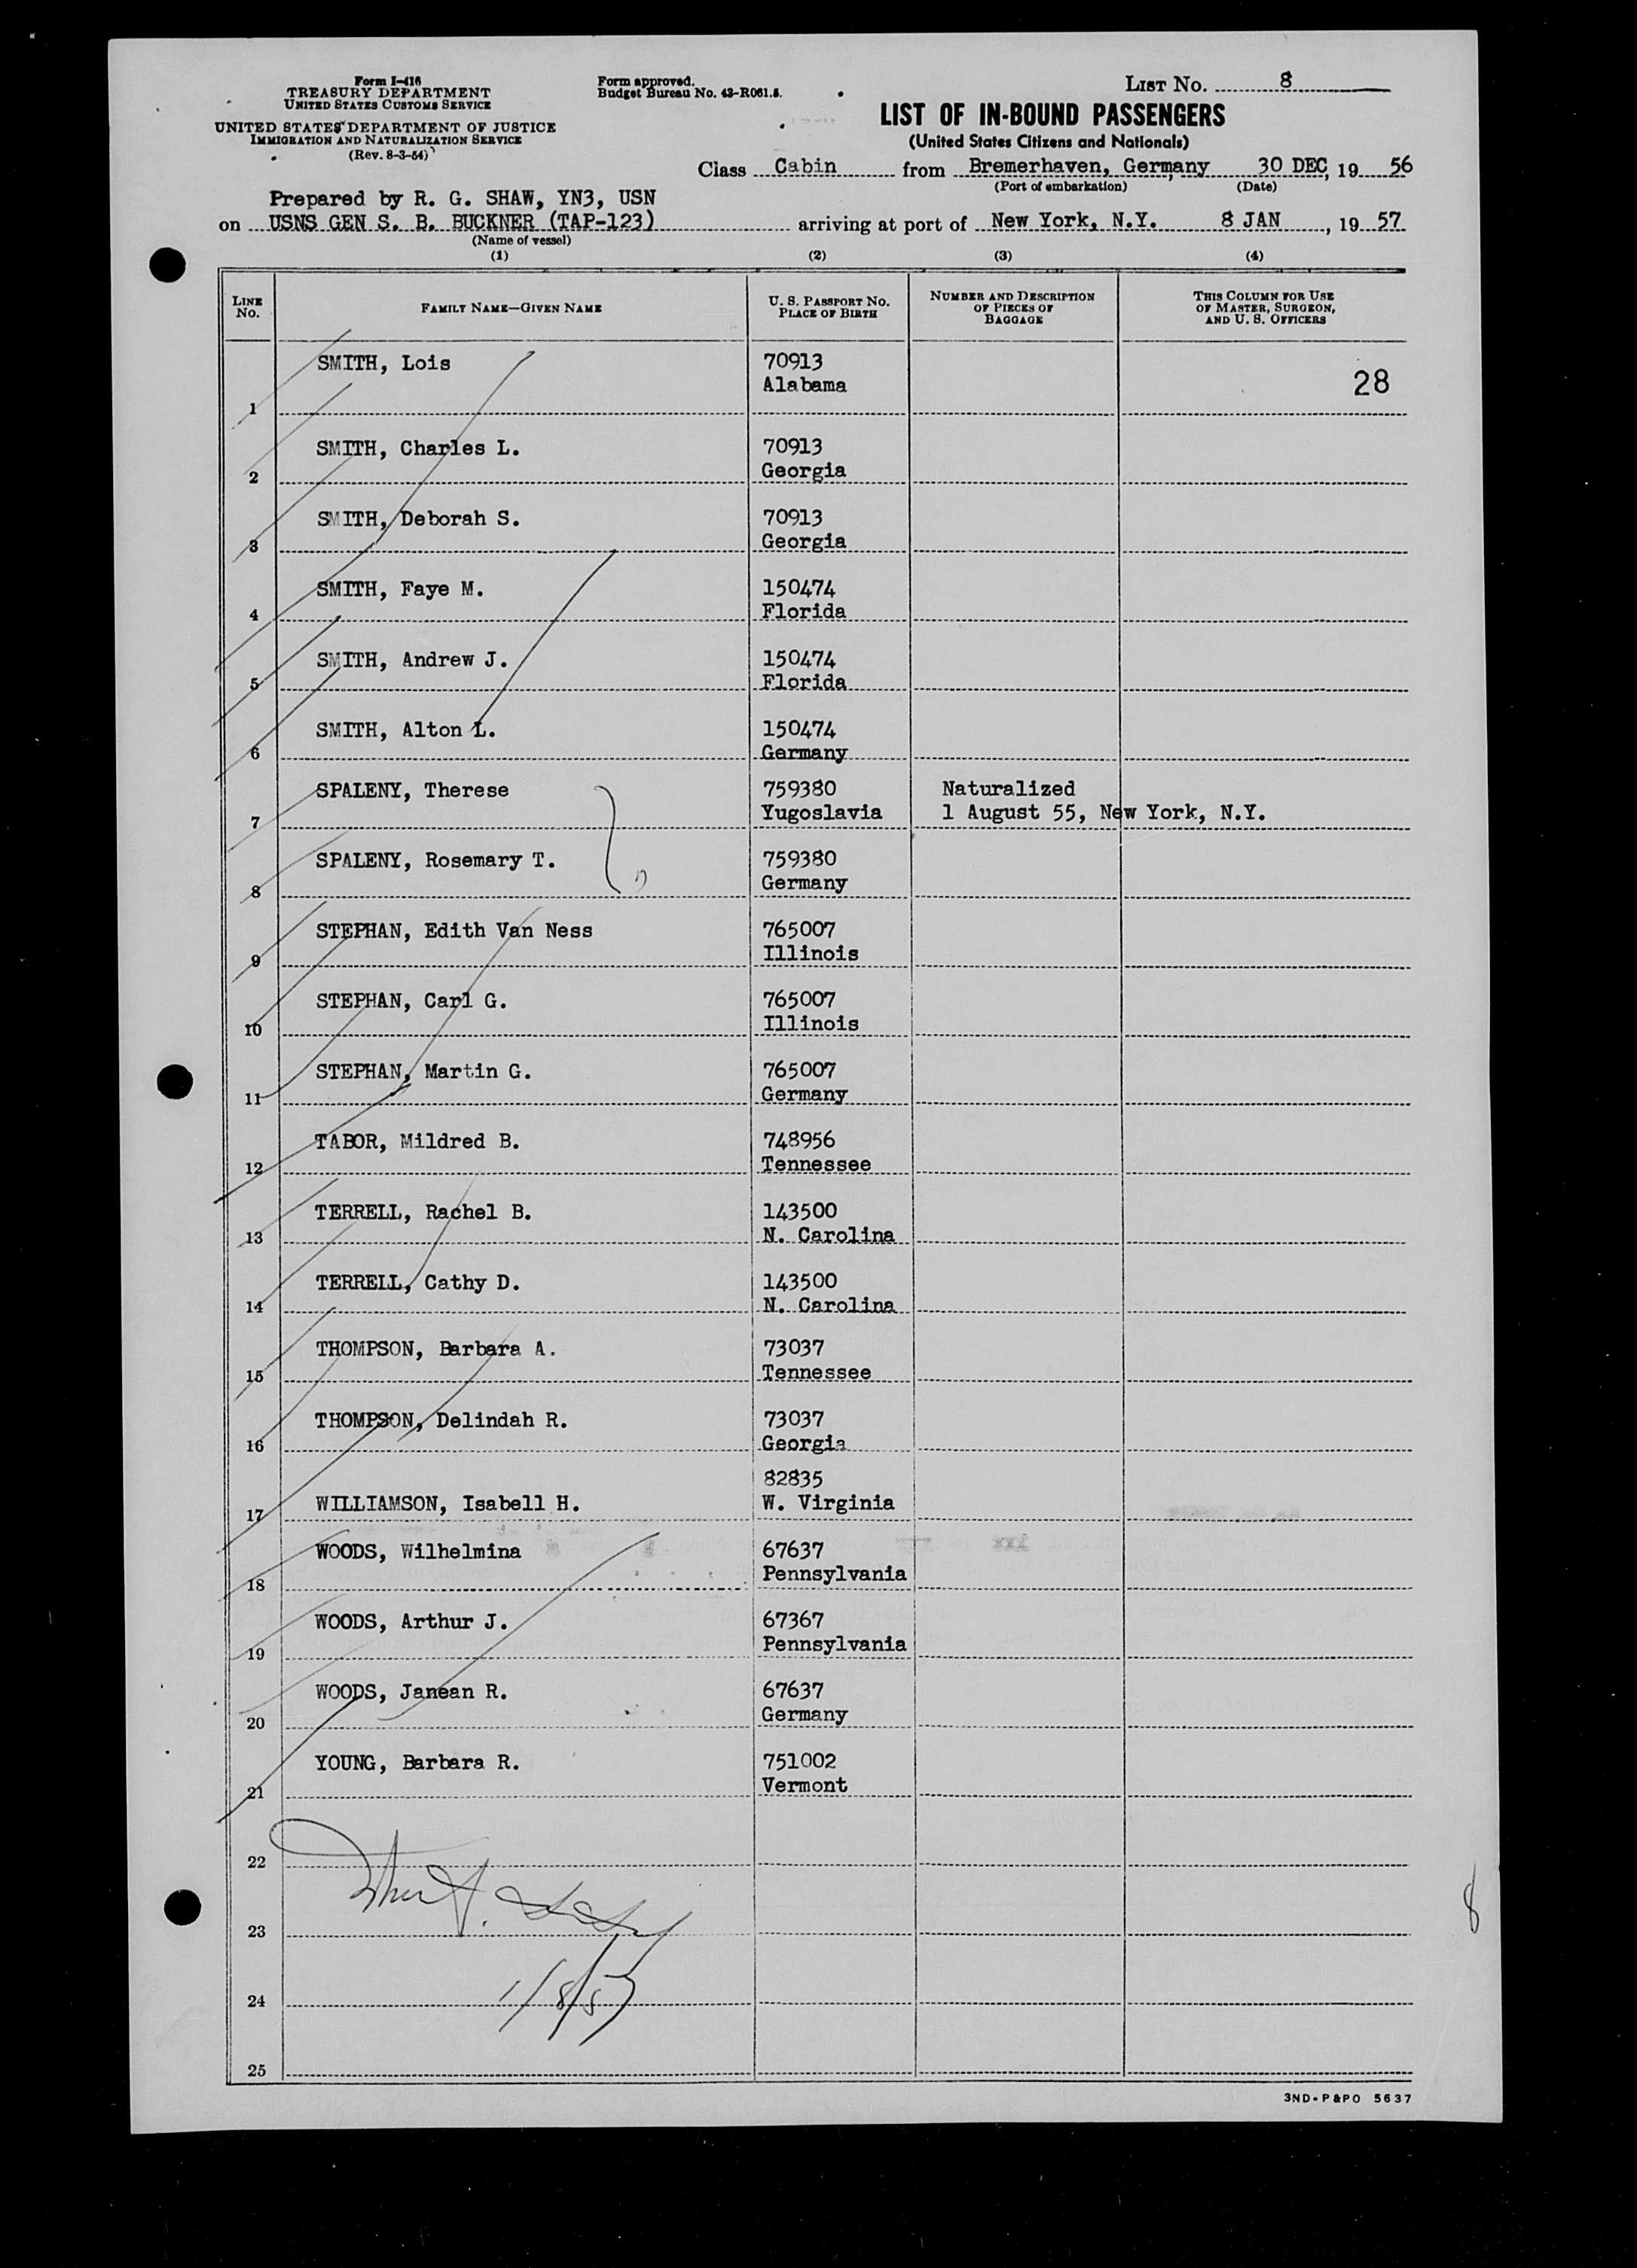 Form I-416
TREASURY DEPARTMENT
UNITED STATES CUSTOMS SERVICE
UNITED STATES DEPARTMENT OF JUSTICE
IMMIGRATION AND NATURALIZATION SERVICE
(Rev. 8-3-54)
Form approved.
Budget Bureau No. 43-R061.5.
LIST No. 8
LIST OF IN-BOUND PASSENGERS
(United States Citizens and Nationals)
Class Cabin from Bremerhaven, Germany 30 DEC, 19 56
(Port of embarkation) (Date)
Prepared by R. G. SHAW, YN3, USN
on USNS GEN S. B. BUCKNER (TAP-123) arriving at port of New York, N.Y. 8 JAN, 19 57
(Name of vessel)
(1) (2) (3) (4)
LINE No. FAMILY NAME—GIVEN NAME U. S. PASSPORT No. PLACE OF BIRTH NUMBER AND DESCRIPTION OF PIECES OF BAGGAGE THIS COLUMN FOR USE OF MASTER, SURGEON, AND U. S. OFFICERS
SMITH, Lois 70913
Alabama 28
1
SMITH, Charles L. 70913
2 Georgia
SMITH, Deborah S. 70913
3 Georgia
SMITH, Faye M. 150474
4 Florida
SMITH, Andrew J. 150474
5 Florida
SMITH, Alton L. 150474
6 Germany
SPALENY, Therese 759380 Naturalized
7 Yugoslavia 1 August 55, New York, N.Y.
SPALENY, Rosemary T. 759380
8 Germany
STEPHAN, Edith Van Ness 765007
9 Illinois
STEPHAN, Carl G. 765007
10 Illinois
STEPHAN, Martin G. 765007
11 Germany
TABOR, Mildred B. 748956
12 Tennessee
TERRELL, Rachel B. 143500
13 N. Carolina
TERRELL, Cathy D. 143500
14 N. Carolina
THOMPSON, Barbara A. 73037
15 Tennessee
THOMPSON, Delindah R. 73037
16 Georgia
82835
17 WILLIAMSON, Isabell H. W. Virginia
WOODS, Wilhelmina 67637
18 Pennsylvania
WOODS, Arthur J. 67367
19 Pennsylvania
WOODS, Janean R. 67637
20 Germany
YOUNG, Barbara R. 751002
21 Vermont
22
23
8
24 1/8/57
25
3ND-P&PO 5637